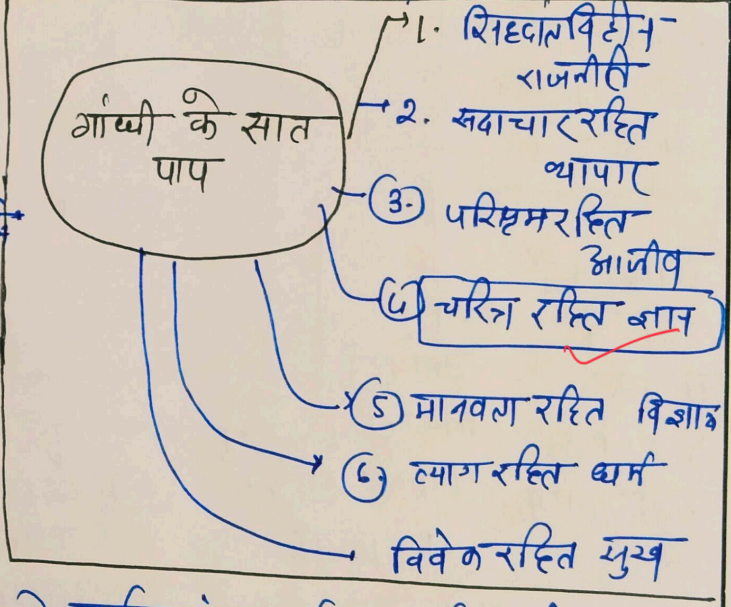 गांधी के सात
पाप
1. सिद्धांतविहीन
राजनीति
2. सदाचार रहित
व्यापार
3. परिश्रम रहित
आजीव
4 चरित्र रहित ज्ञान
5 मानवता रहित विज्ञान
6. त्याग रहित धर्म
विवेक रहित सुख